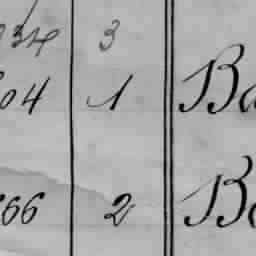 234 3
04 1 Ba
66 2 Be